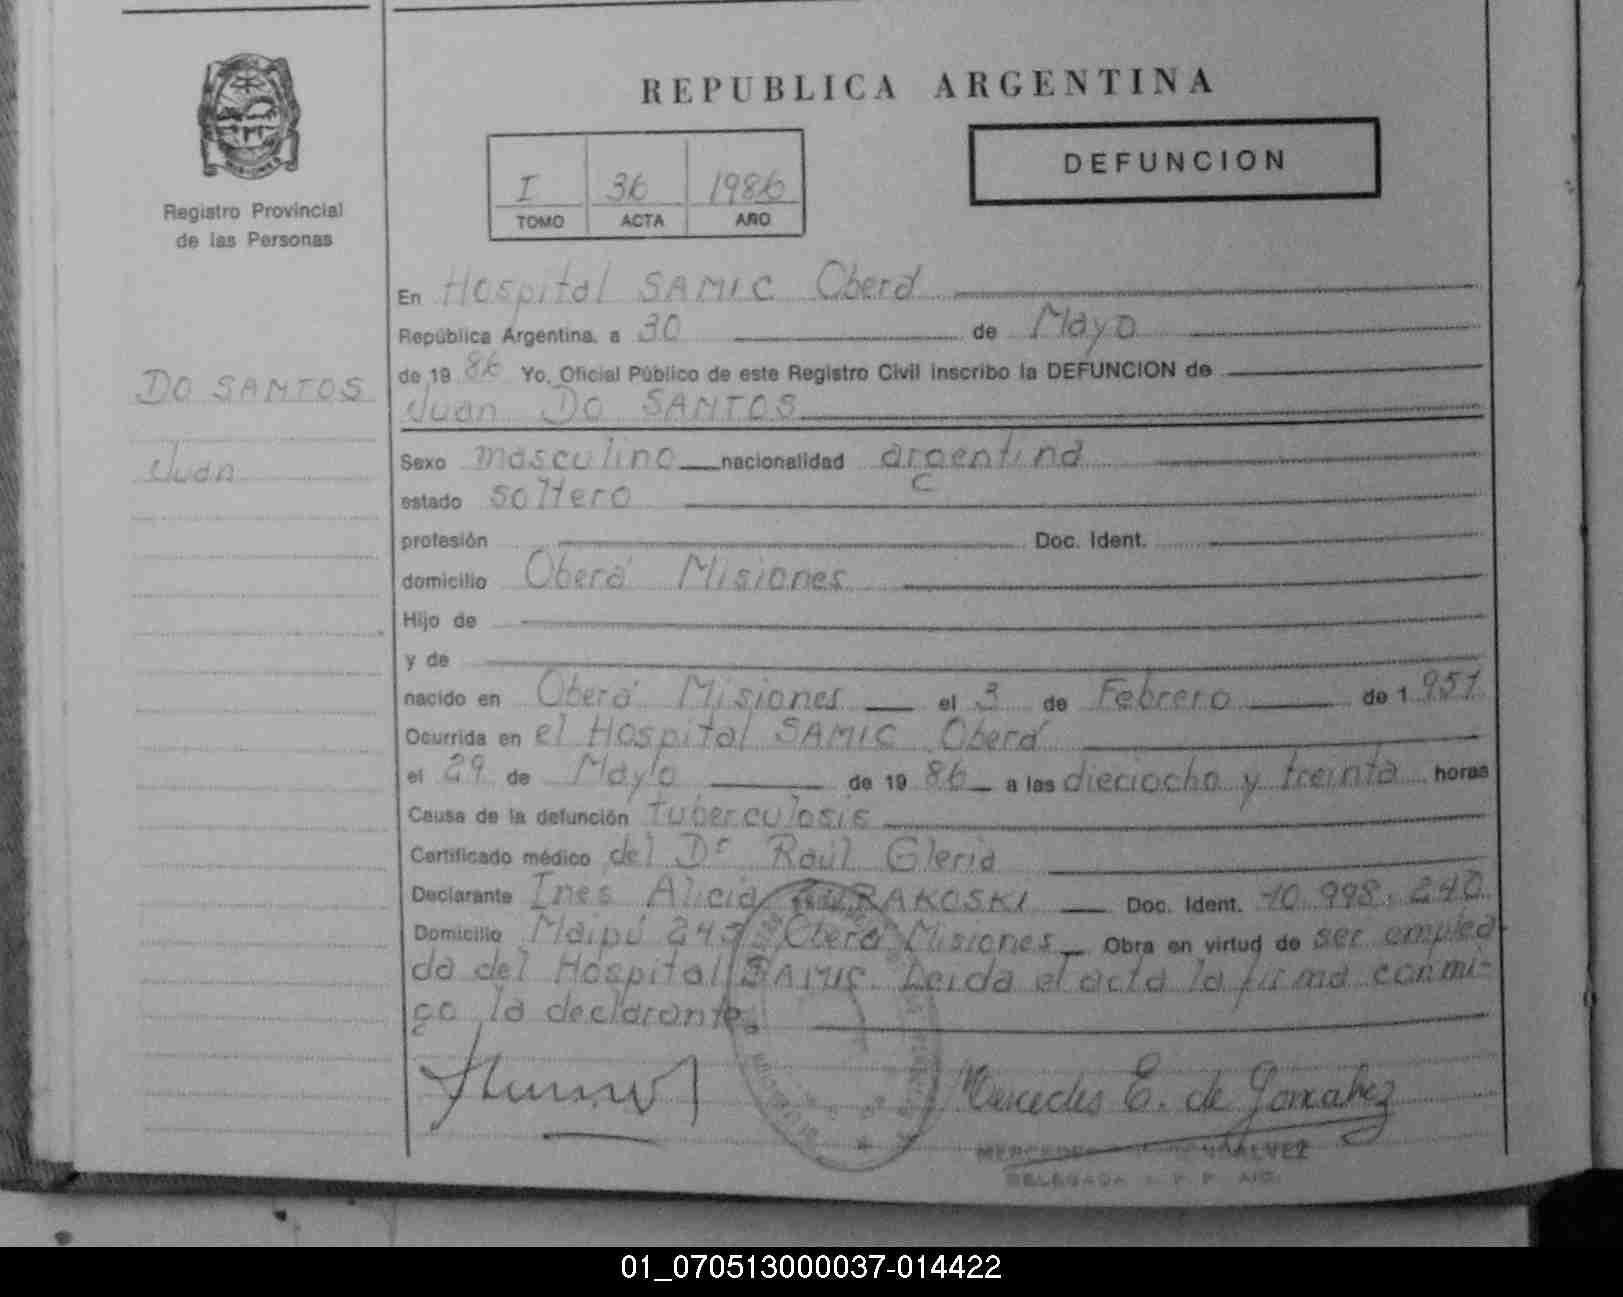 REPUBLICA ARGENTINA
DEFUNCION
I 36 1986
TOMO ACTA AÑO
Registro Provincial
de las Personas
DO SANTOS
Juan
En Hospital SAMIC Oberá
República Argentina, a 30 de Mayo
de 19 86 Yo, Oficial Público de este Registro Civil inscribo la DEFUNCION de
Juan DO SANTOS
Sexo masculino nacionalidad argentina
estado soltero
profesión Doc. Ident.
domicilio Oberá Misiones
Hijo de
y de
nacido en Oberá Misiones el 3 de Febrero de 1 951
Ocurrida en el Hospital SAMIC Oberá
el 29 de Mayo de 19 86 a las dieciocho y treinta horas
Causa de la defunción tuberculosis
Certificado médico del Dr Raúl Gleria
Declarante Ines Alicia Doc. Ident. 10.998.240
Domicilio Maipú Oberá Misiones Obra en virtud de ser emplea-
da del Hospital SAMIC. Leida el acta la firma conmi-
go la declarante.
Mercedes E. de Gonzalvez
DELEGADA
01_070513000037-014422